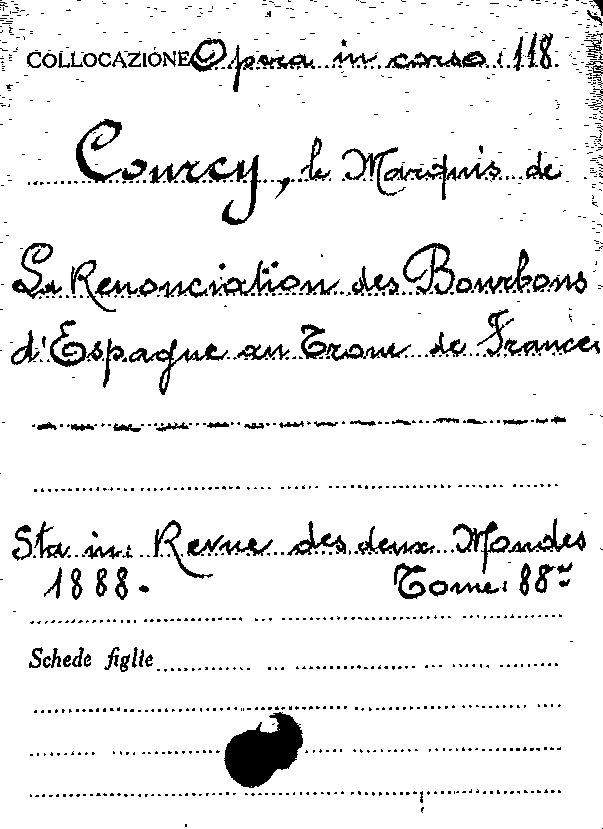 COLLOCAZIONE Opera in corso: 118
Courcy, le Marquis de
La Renonciation des Bourbons
d'Espagne au Trone de France.
Sta in: Revue des deux Mondes
1888. Tome: 88me
Schede figlie